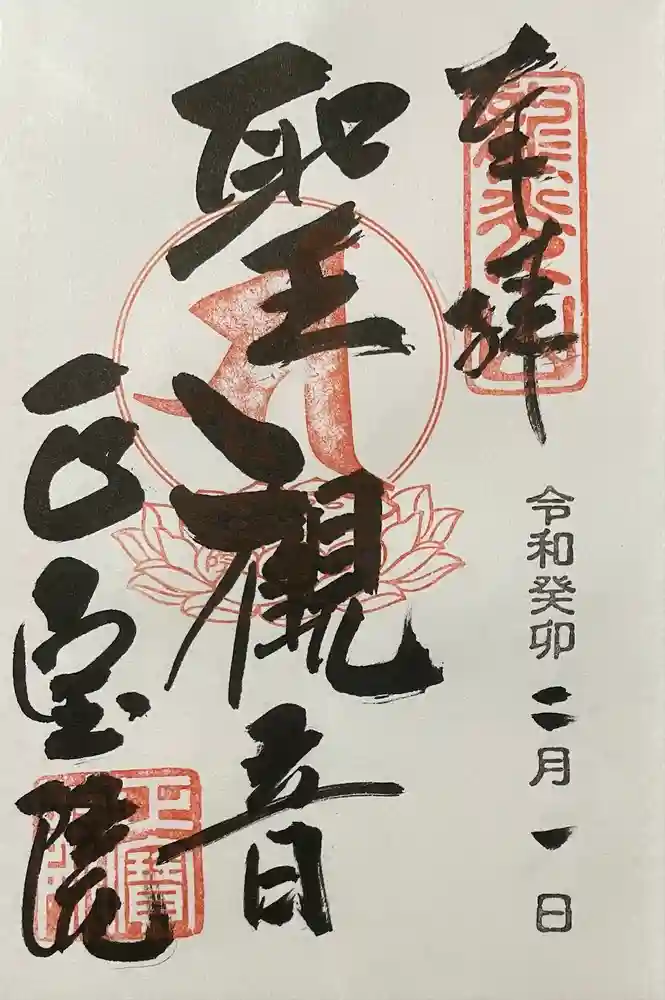 奉拝
龍光山
令和癸卯二月一日
聖観音
正宝院
正寶